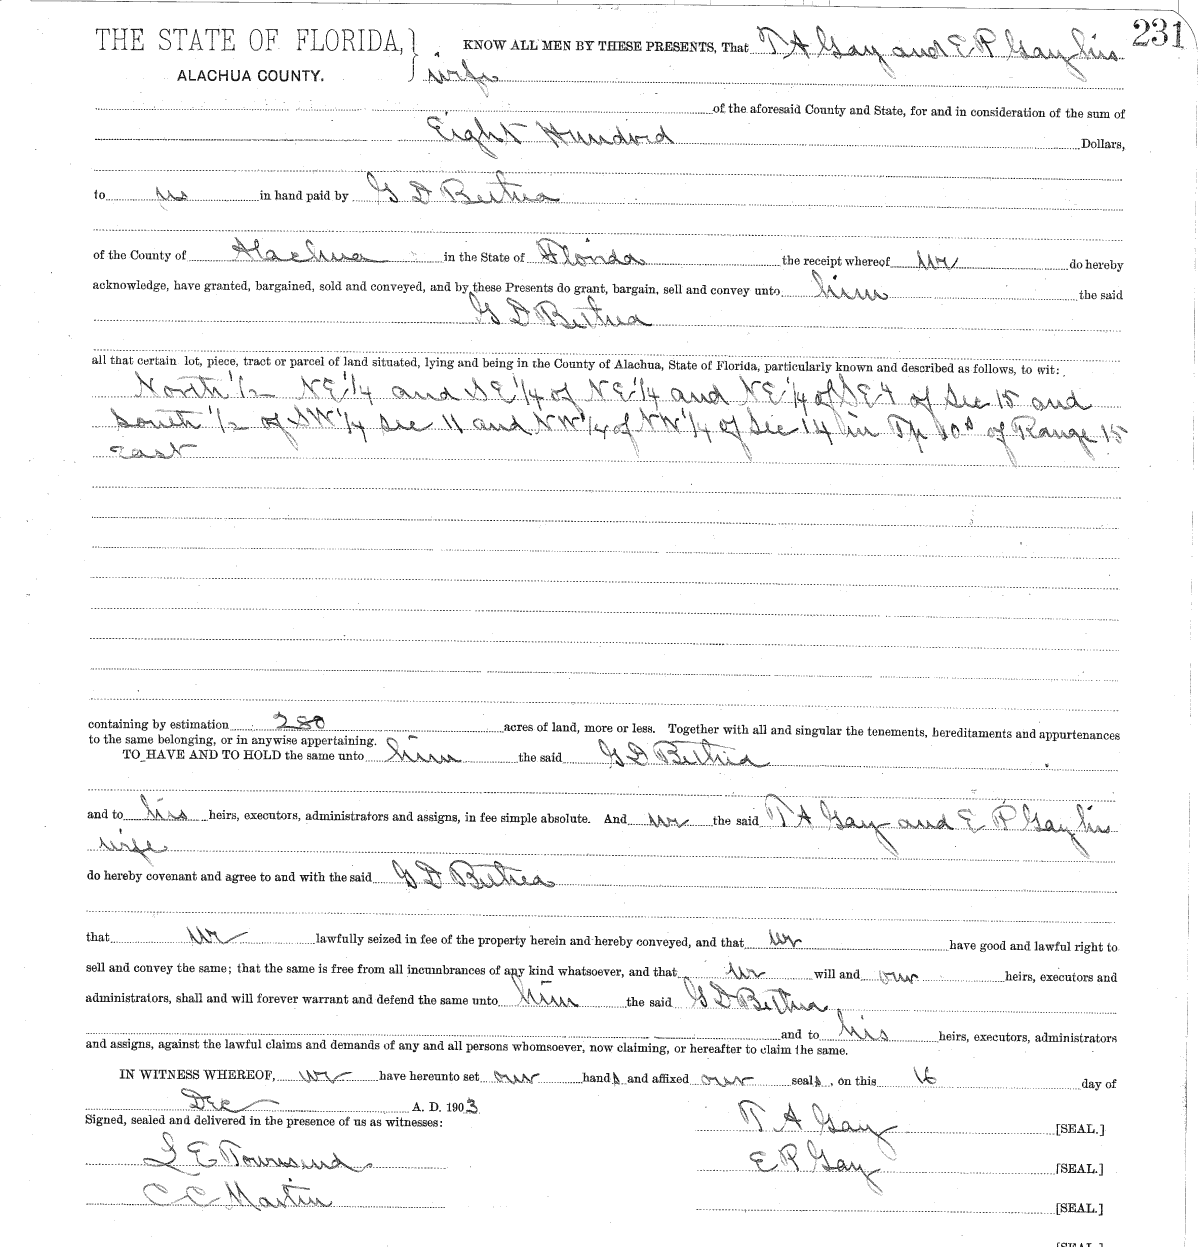 231
THE STATE OF FLORIDA, } KNOW ALL MEN BY THESE PRESENTS, That T A Gay and E P Gay his
ALACHUA COUNTY. wife
of the aforesaid County and State, for and in consideration of the sum of
Eight Hundred Dollars,
to us in hand paid by G D Bethea
of the County of Alachua in the State of Florida the receipt whereof we do hereby
acknowledge, have granted, bargained, sold and conveyed, and by these Presents do grant, bargain, sell and convey unto him the said
G D Bethea
all that certain lot, piece, tract or parcel of land situated, lying and being in the County of Alachua, State of Florida, particularly known and described as follows, to wit:
North 1/2 NE 1/4 and SE 1/4 of NE 1/4 and NE 1/4 of SE 4 of Sec 15 and
South 1/2 of SW 1/4 Sec 11 and NW 1/4 of NW 1/4 of Sec 14 in Tp 10 s of Range 15
East
containing by estimation 280 acres of land, more or less. Together with all and singular the tenements, hereditaments and appurtenances
to the same belonging, or in anywise appertaining.
TO HAVE AND TO HOLD the same unto him the said G D Bethea
and to his heirs, executors, administrators and assigns, in fee simple absolute. And we the said T A Gay and E P Gay his
wife
do hereby covenant and agree to and with the said G D Bethea
that we lawfully seized in fee of the property herein and hereby conveyed, and that we have good and lawful right to
sell and convey the same; that the same is free from all incumbrances of any kind whatsoever, and that we will and our heirs, executors and
administrators, shall and will forever warrant and defend the same unto him the said G D Bethea
and to his heirs, executors, administrators
and assigns, against the lawful claims and demands of any and all persons whomsoever, now claiming, or hereafter to claim the same.
IN WITNESS WHEREOF, we have hereunto set our hands and affixed our seals, on this 16 day of
Dec A. D. 1903
Signed, sealed and delivered in the presence of us as witnesses: T A Gay [SEAL.]
L E Townsend E P Gay [SEAL.]
C C Martin [SEAL.]